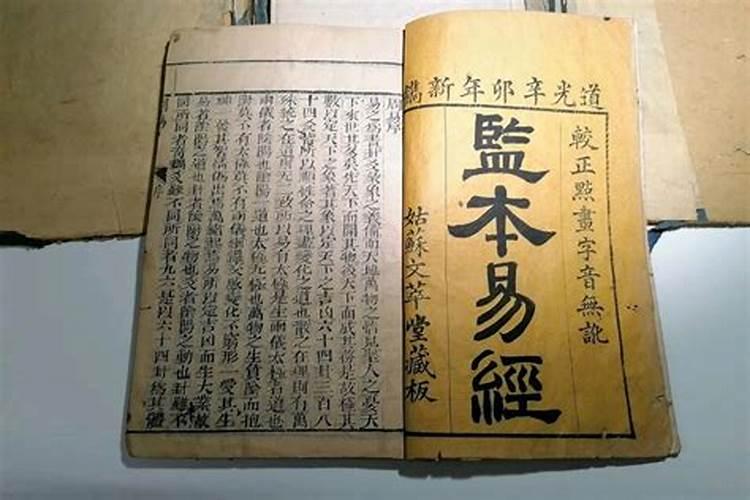 道光辛卯年新鐫
較正點畫字音無訛
監本易經
姑蘇文萃堂藏板
周易序
易之爲書卦爻彖象之義備而天地萬物之情見聖人之憂天
下來世其至矣先天下而開其物後天下而成其務是故極其
數以定天下之象著其象以定天下之吉凶六十四卦三百八
十四爻皆所以順性命之理盡變化之道也散之在理則有萬
殊統之在道則无二致所以易有太極是生兩儀太極者道也
兩儀者陰陽也陰陽一道也太極无極也萬物之生負陰而抱
陽莫不有太極莫不有兩儀絪縕交感變化不窮形一受其生
神一發其智情偽出焉萬緒起焉易所以定吉凶而生大業故
易者陰陽之道也卦者陰陽之物也爻者陰陽之動也卦雖不
同所同者奇耦爻雖不同所同者九六是以六十四卦爲其體